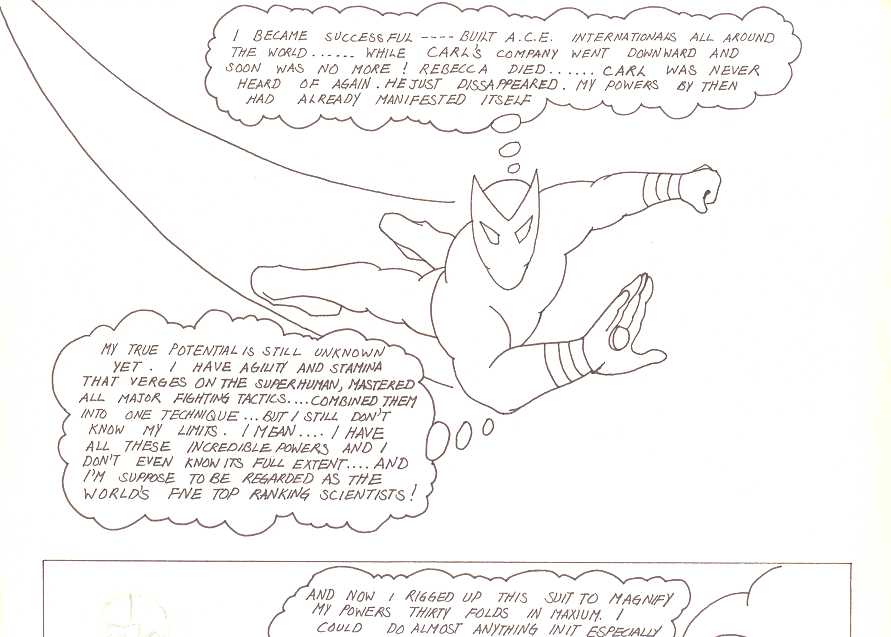 I BECAME SUCCESSFUL ---- BUILT A.C.E. INTERNATIONALS ALL AROUND
THE WORLD...... WHILE CARL'S COMPANY WENT DOWNWARD AND
SOON WAS NO MORE! REBECCA DIED...... CARL WAS NEVER
HEARD OF AGAIN. HE JUST DISSAPPEARED. MY POWERS BY THEN
HAD ALREADY MANIFESTED ITSELF
MY TRUE POTENTIAL IS STILL UNKNOWN
YET. I HAVE AGILITY AND STAMINA
THAT VERGES ON THE SUPERHUMAN, MASTERED
ALL MAJOR FIGHTING TACTICS....COMBINED THEM
INTO ONE TECHNIQUE...BUT I STILL DON'T
KNOW MY LIMITS. I MEAN.... I HAVE
ALL THESE INCREDIBLE POWERS AND I
DON'T EVEN KNOW ITS FULL EXTENT.... AND
I'M SUPPOSE TO BE REGARDED AS THE
WORLD'S FIVE TOP RANKING SCIENTISTS!
AND NOW I RIGGED UP THIS SUIT TO MAGNIFY
MY POWERS THIRTY FOLDS IN MAXIUM. I
COULD DO ALMOST ANYTHING IN IT ESPECIALLY